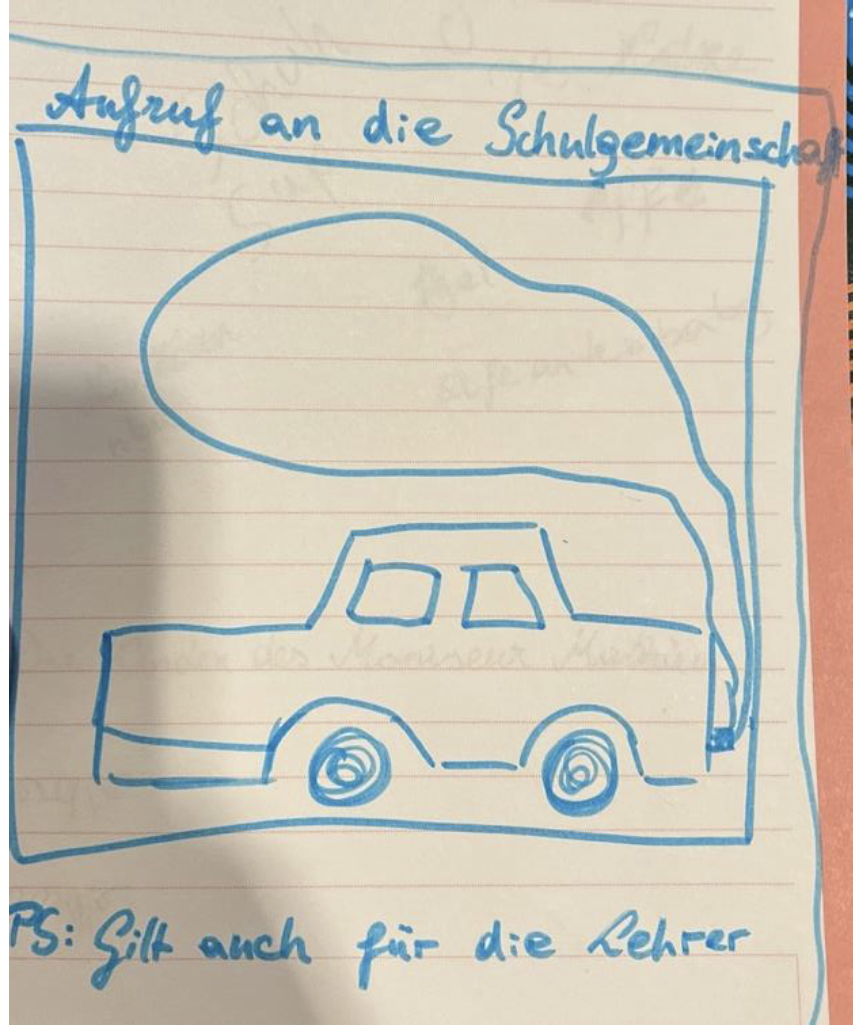 Aufruf an die Schulgemeinschaft
PS: Gilt auch für die Lehrer